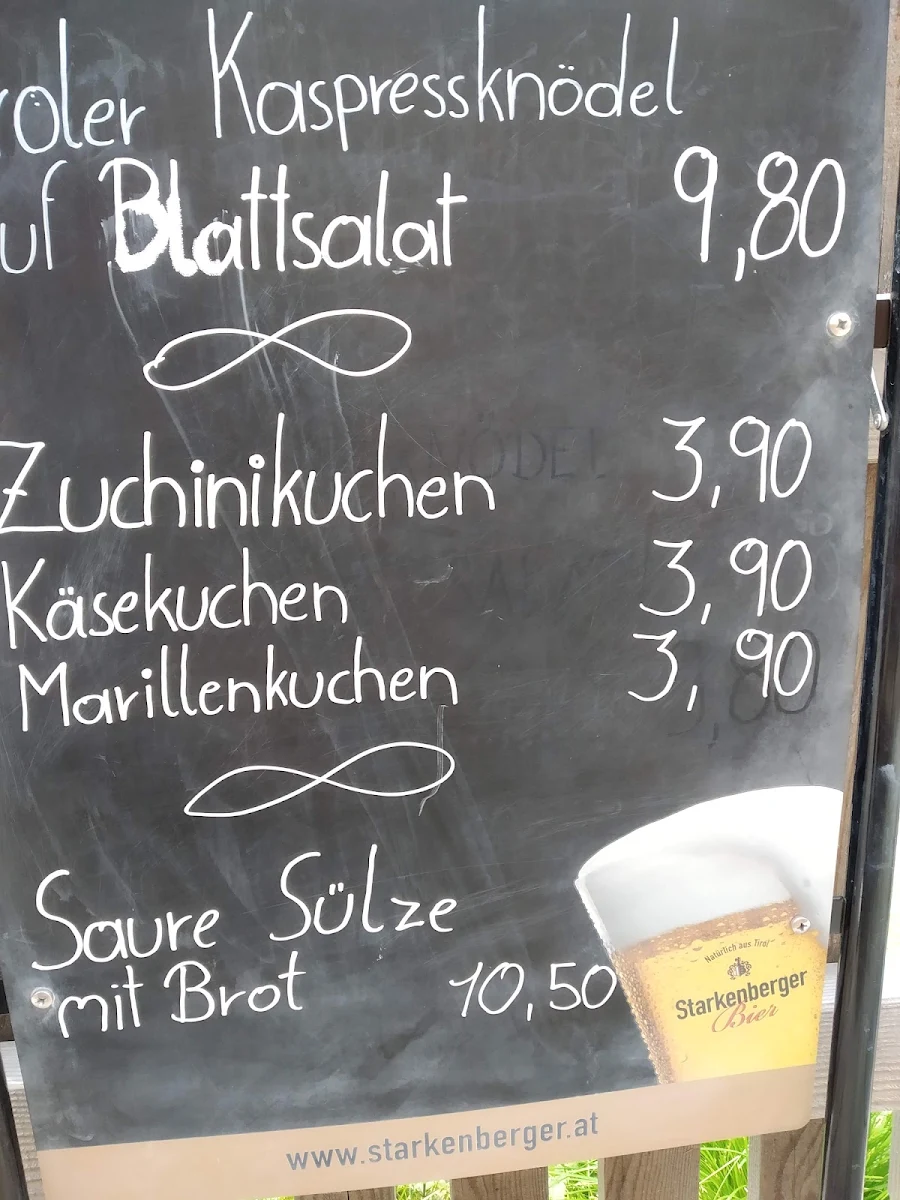 roler Kaspressknödel
uf Blattsalat 9,80
Zuchinikuchen 3,90
Käsekuchen 3,90
Marillenkuchen 3,90
Saure Sülze
mit Brot 10,50
Natürlich aus Tirol
Starkenberger
Bier
www.starkenberger.at